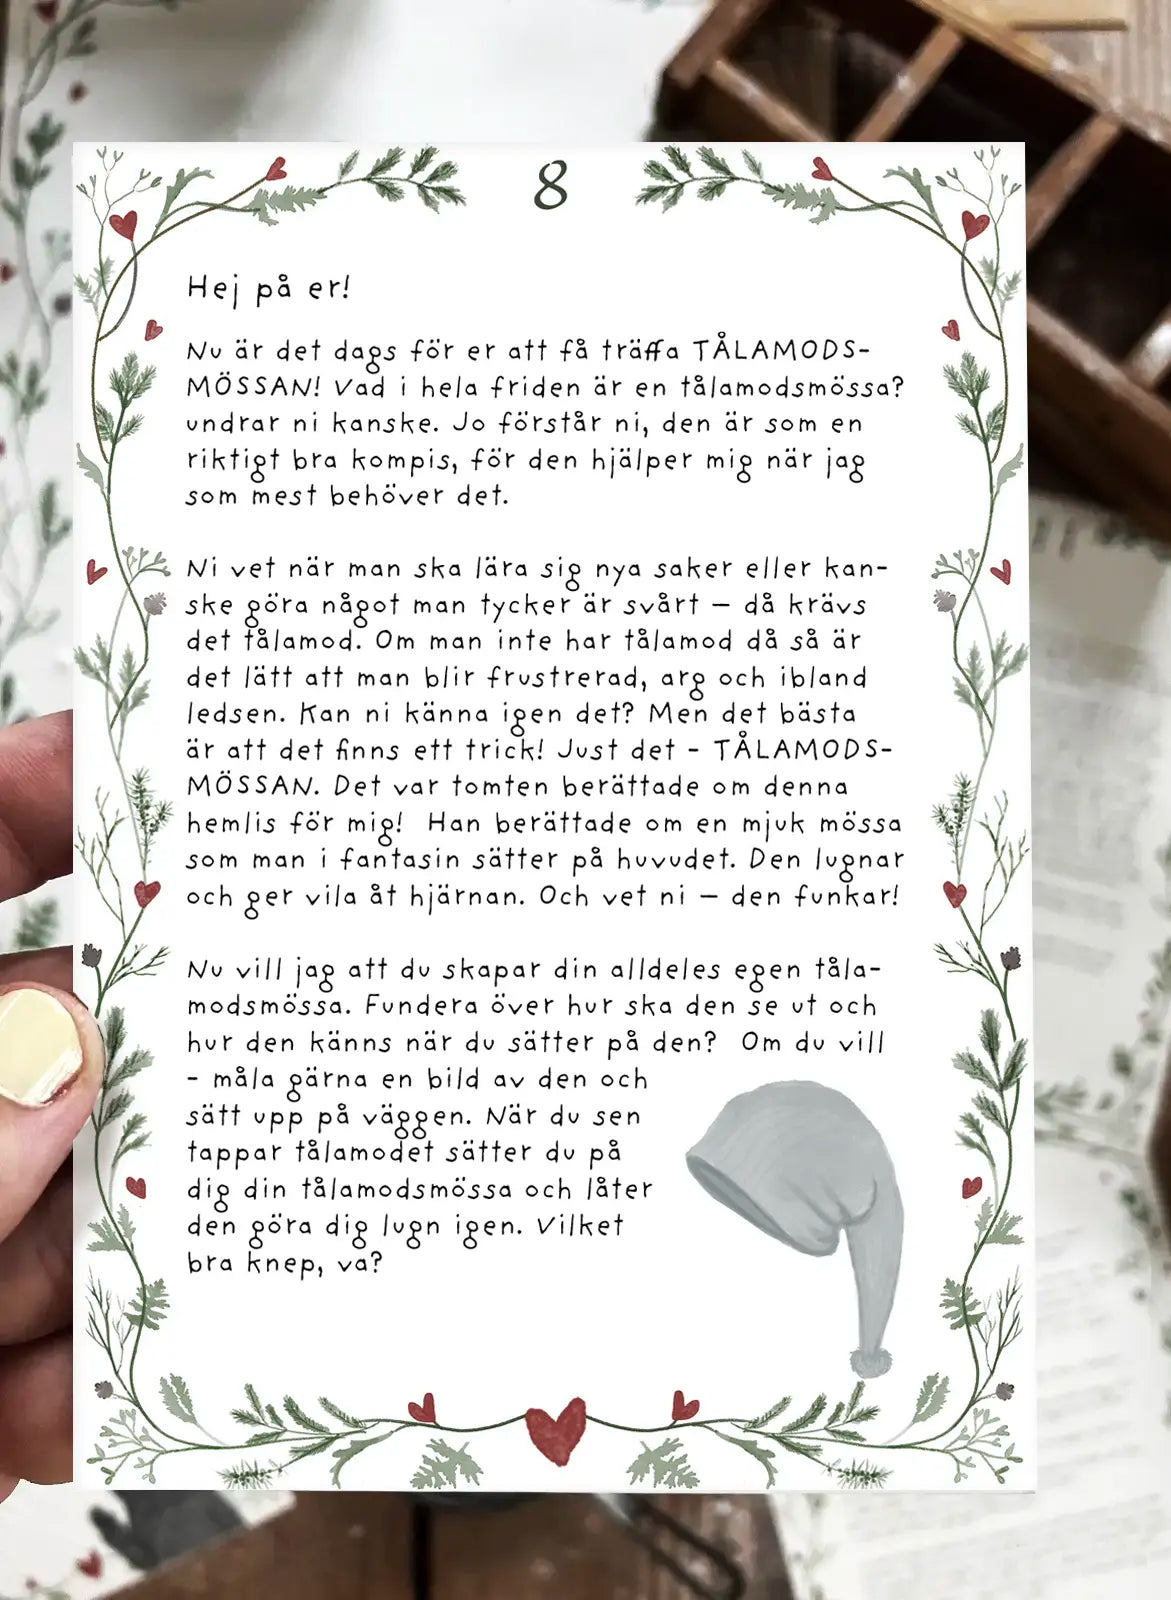 8
Hej på er!
Nu är det dags för er att få träffa TÅLAMODS-
MÖSSAN! Vad i hela friden är en tålamodsmössa?
undrar ni kanske. Jo förstår ni, den är som en
riktigt bra kompis, för den hjälper mig när jag
som mest behöver det.
Ni vet när man ska lära sig nya saker eller kan-
ske göra något man tycker är svårt – då krävs
det tålamod. Om man inte har tålamod då så är
det lätt att man blir frustrerad, arg och ibland
ledsen. Kan ni känna igen det? Men det bästa
är att det finns ett trick! Just det - TÅLAMODS-
MÖSSAN. Det var tomten berättade om denna
hemlis för mig!  Han berättade om en mjuk mössa
som man i fantasin sätter på huvudet. Den lugnar
och ger vila åt hjärnan. Och vet ni – den funkar!
Nu vill jag att du skapar din alldeles egen tåla-
modsmössa. Fundera över hur ska den se ut och
hur den känns när du sätter på den?  Om du vill
- måla gärna en bild av den och
sätt upp på väggen. När du sen
tappar tålamodet sätter du på
dig din tålamodsmössa och låter
den göra dig lugn igen. Vilket
bra knep, va?